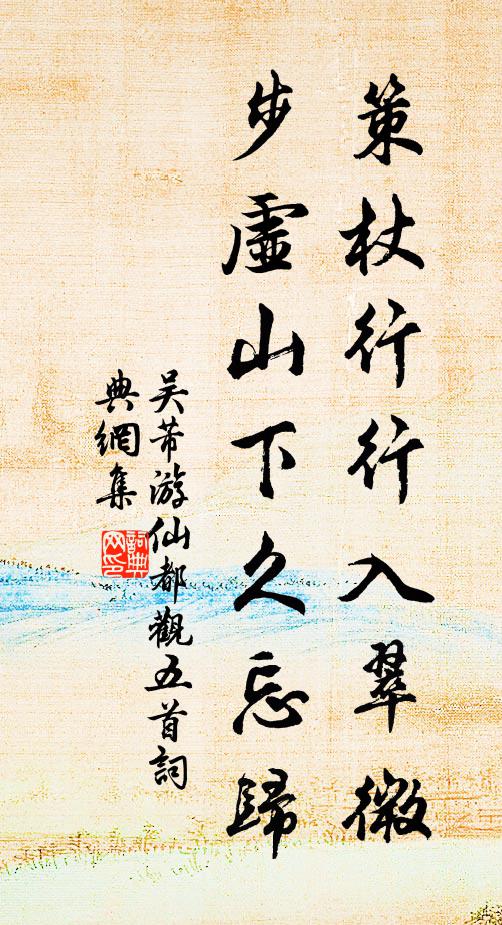 策杖行行入翠微
步虛山下久忘歸
吴芾游仙都觀五首詞
典網集
詞典网印